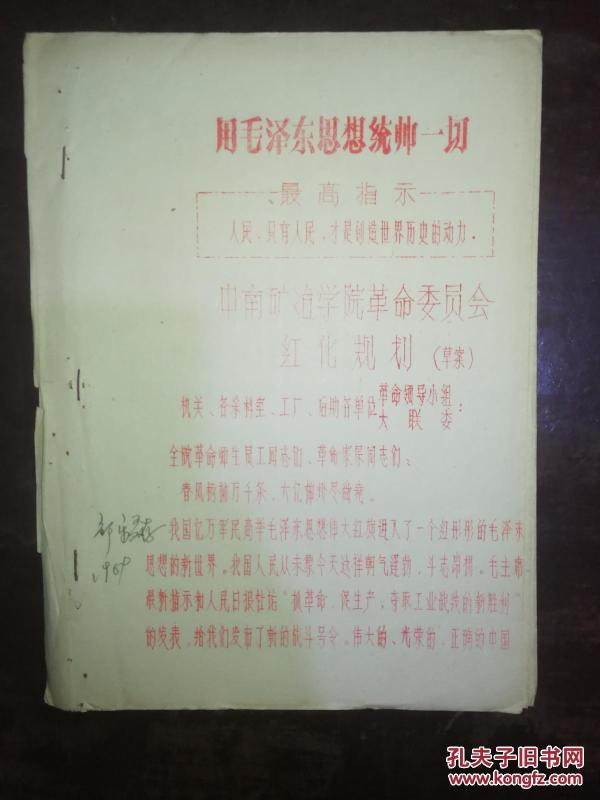 用毛泽东思想统帅一切
最高指示
人民，只有人民，才是创造世界历史的动力。
中南矿冶学院革命委员会
红化规划（草案）
机关、各系科室、工厂、后勤各单位革命领导小组
大联委：
全院革命师生员工同志们、革命家属同志们：
春风杨柳万千条，六亿神州尽舜尧。
我国亿万军民高举毛泽东思想伟大红旗进入了一个红彤彤的毛泽东
思想的新世界。我国人民从未象今天这样朝气蓬勃，斗志昂扬。毛主席
最新指示和人民日报社论"抓革命，促生产，夺取工业战线的新胜利"
的发表，给我们发布了新的战斗号令。伟大的、光荣的、正确的中国
1969
孔夫子旧书网
www.kongfz.com